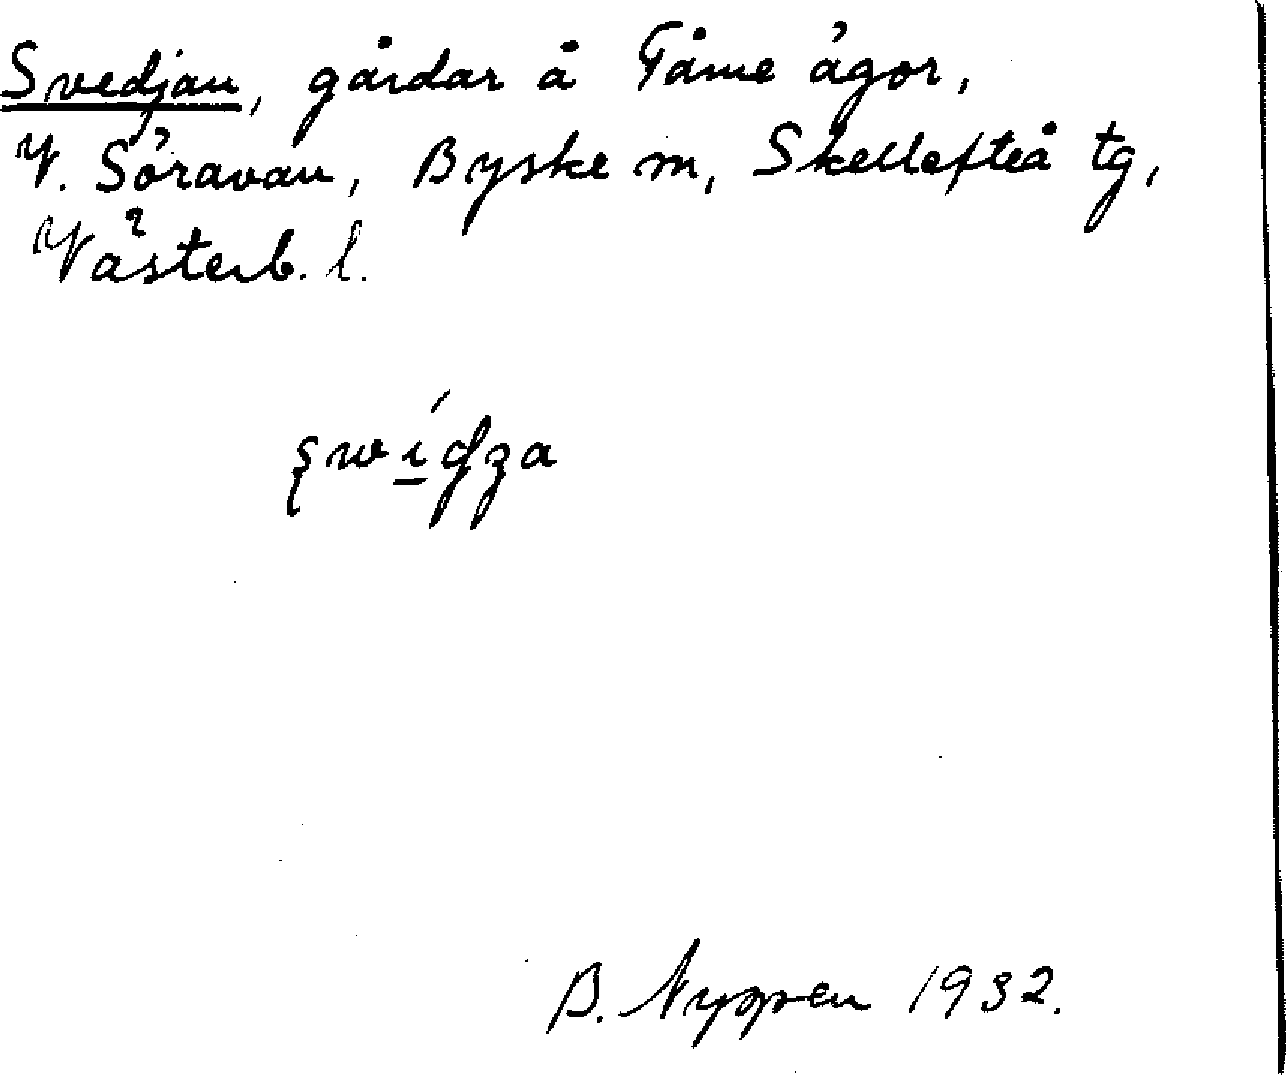 Svedjan, gårdar å Tåme ägor,
V. Söravan, Byske sn, Skellefteå tg,
Västerb. l.
B. Nyppen 1932.